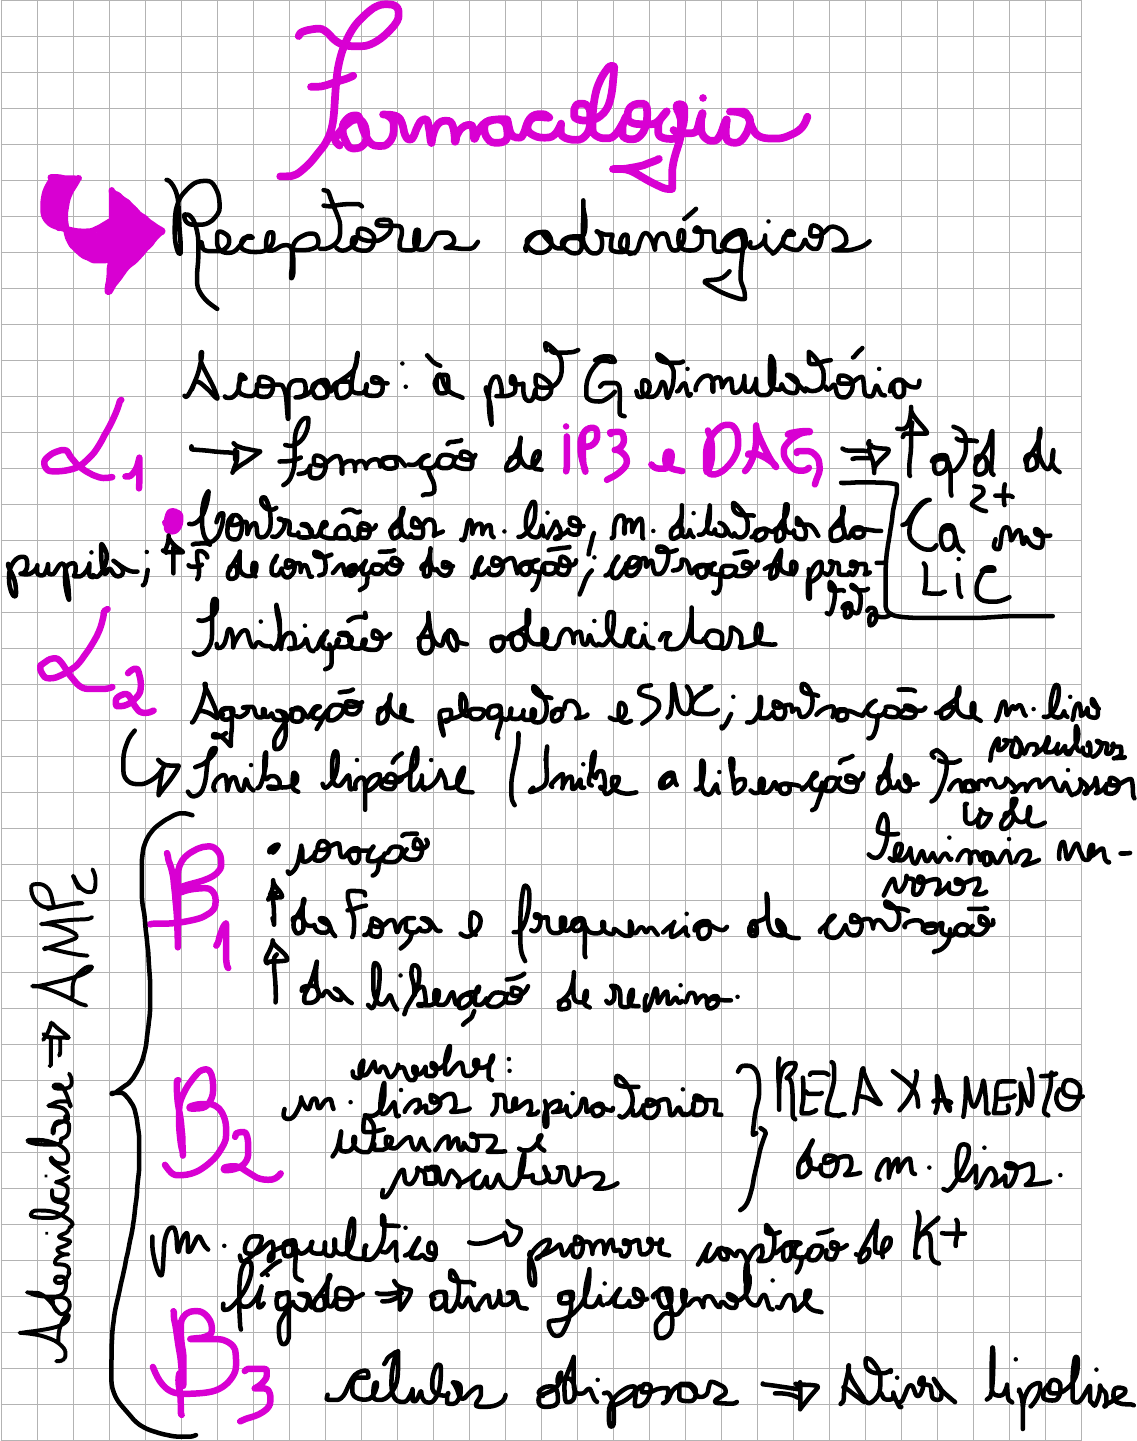 Farmacologia
Receptores adrenérgicos
Acopado: à prot G estimulatória
α1 → formação de iP3 e DAG ⇒ ↑ qtd de
Ca2+ no
LiC
• Contração dos m. liso, m. dilatador da
pupila; ↑ f de contração do coração; contração de pros-
tata
α2 Inibição da adenilciclase
Agregação de plaquetas e SNC; contração de m. liso
vasculares
↳ Inibe lipólise / Inibe a liberação do Transmissor
es de
Terminais ner-
vosos
Adenilciclase ⇒ AMPc
B1 • coração
↑ da Força e frequencia de contração
↑ da liberação de renina.
B2 envolve:
m. lisos respiratorios
uterinos e
vasculares
RELAXAMENTO
dos m. lisos.
m. esquletico → promove captação de K+
fígado ⇒ ativa glicogenolise
B3 células adiposas ⇒ Ativa lipolise